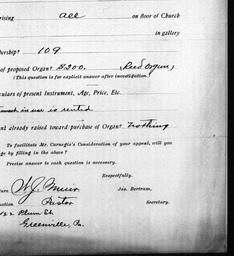 rising all on floor of Church
in gallery
dership? 109
of proposed Organ? $1200. (Reed Organ)
(This question is for explicit answer after investigation.)
culars of present Instrument, Age, Price, Etc.
in use is rented
nt already raised toward purchase of Organ? Nothing
To facilitate Mr. Carnegie's Consideration of your appeal, will you
ge by filling in the above?
Precise answer to each question is necessary.
Respectfully,
ture W. J. Muir Jas. Bertram,
ation Pastor Secretary.
Plum St.
Greenville, Pa.